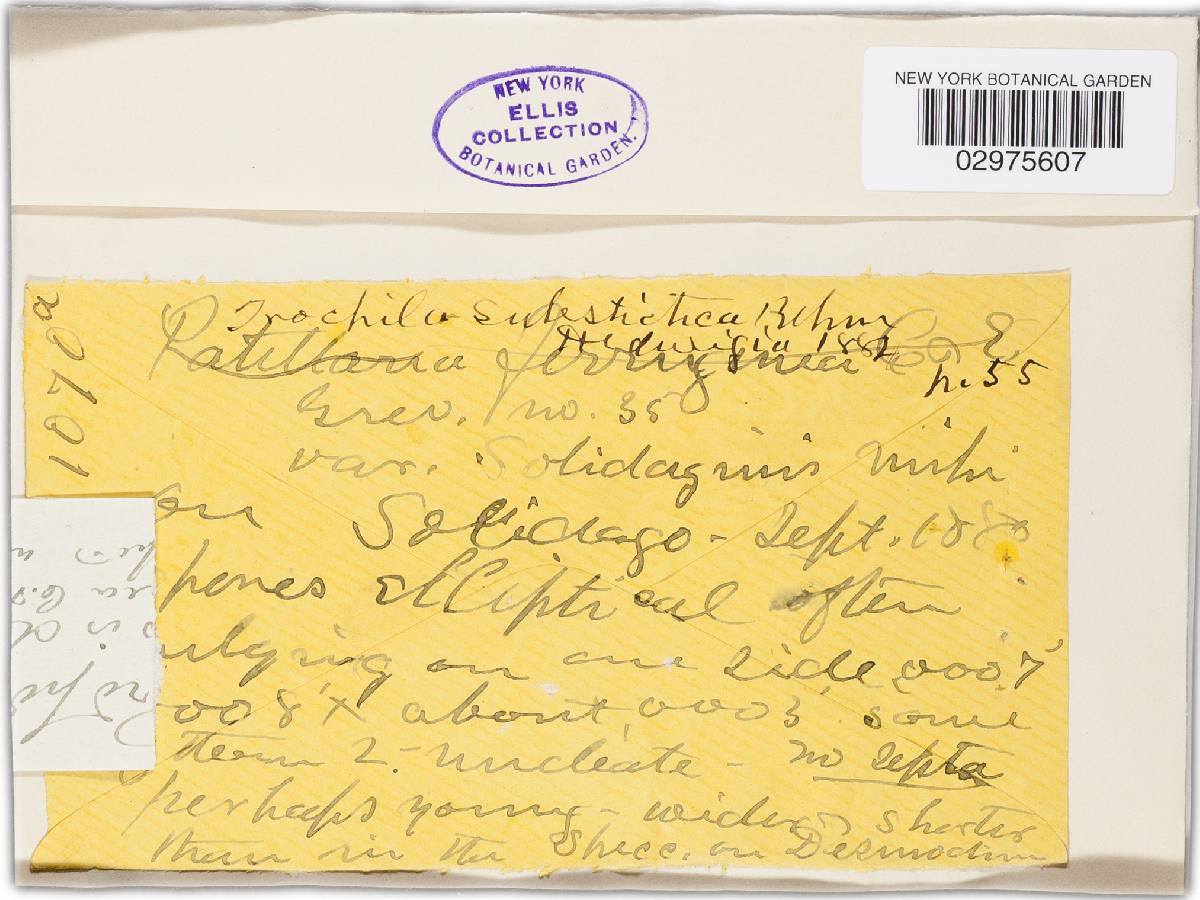 NEW YORK
ELLIS
COLLECTION
BOTANICAL GARDEN.
NEW YORK BOTANICAL GARDEN
02975607
1070a
Trochila substictica Rehm
Hedwigia 1882
p. 55
Patellaria ferruginea C & E
Grev. no. 35
var. Solidaginis mihi
on Solidago - Sept. 1880
pores elliptical often
ulging on one side .0007
008 × about .0003 some
them 2-nucleate - no septa
perhaps young - wider & shorter
than in the Spec. on Desmodium